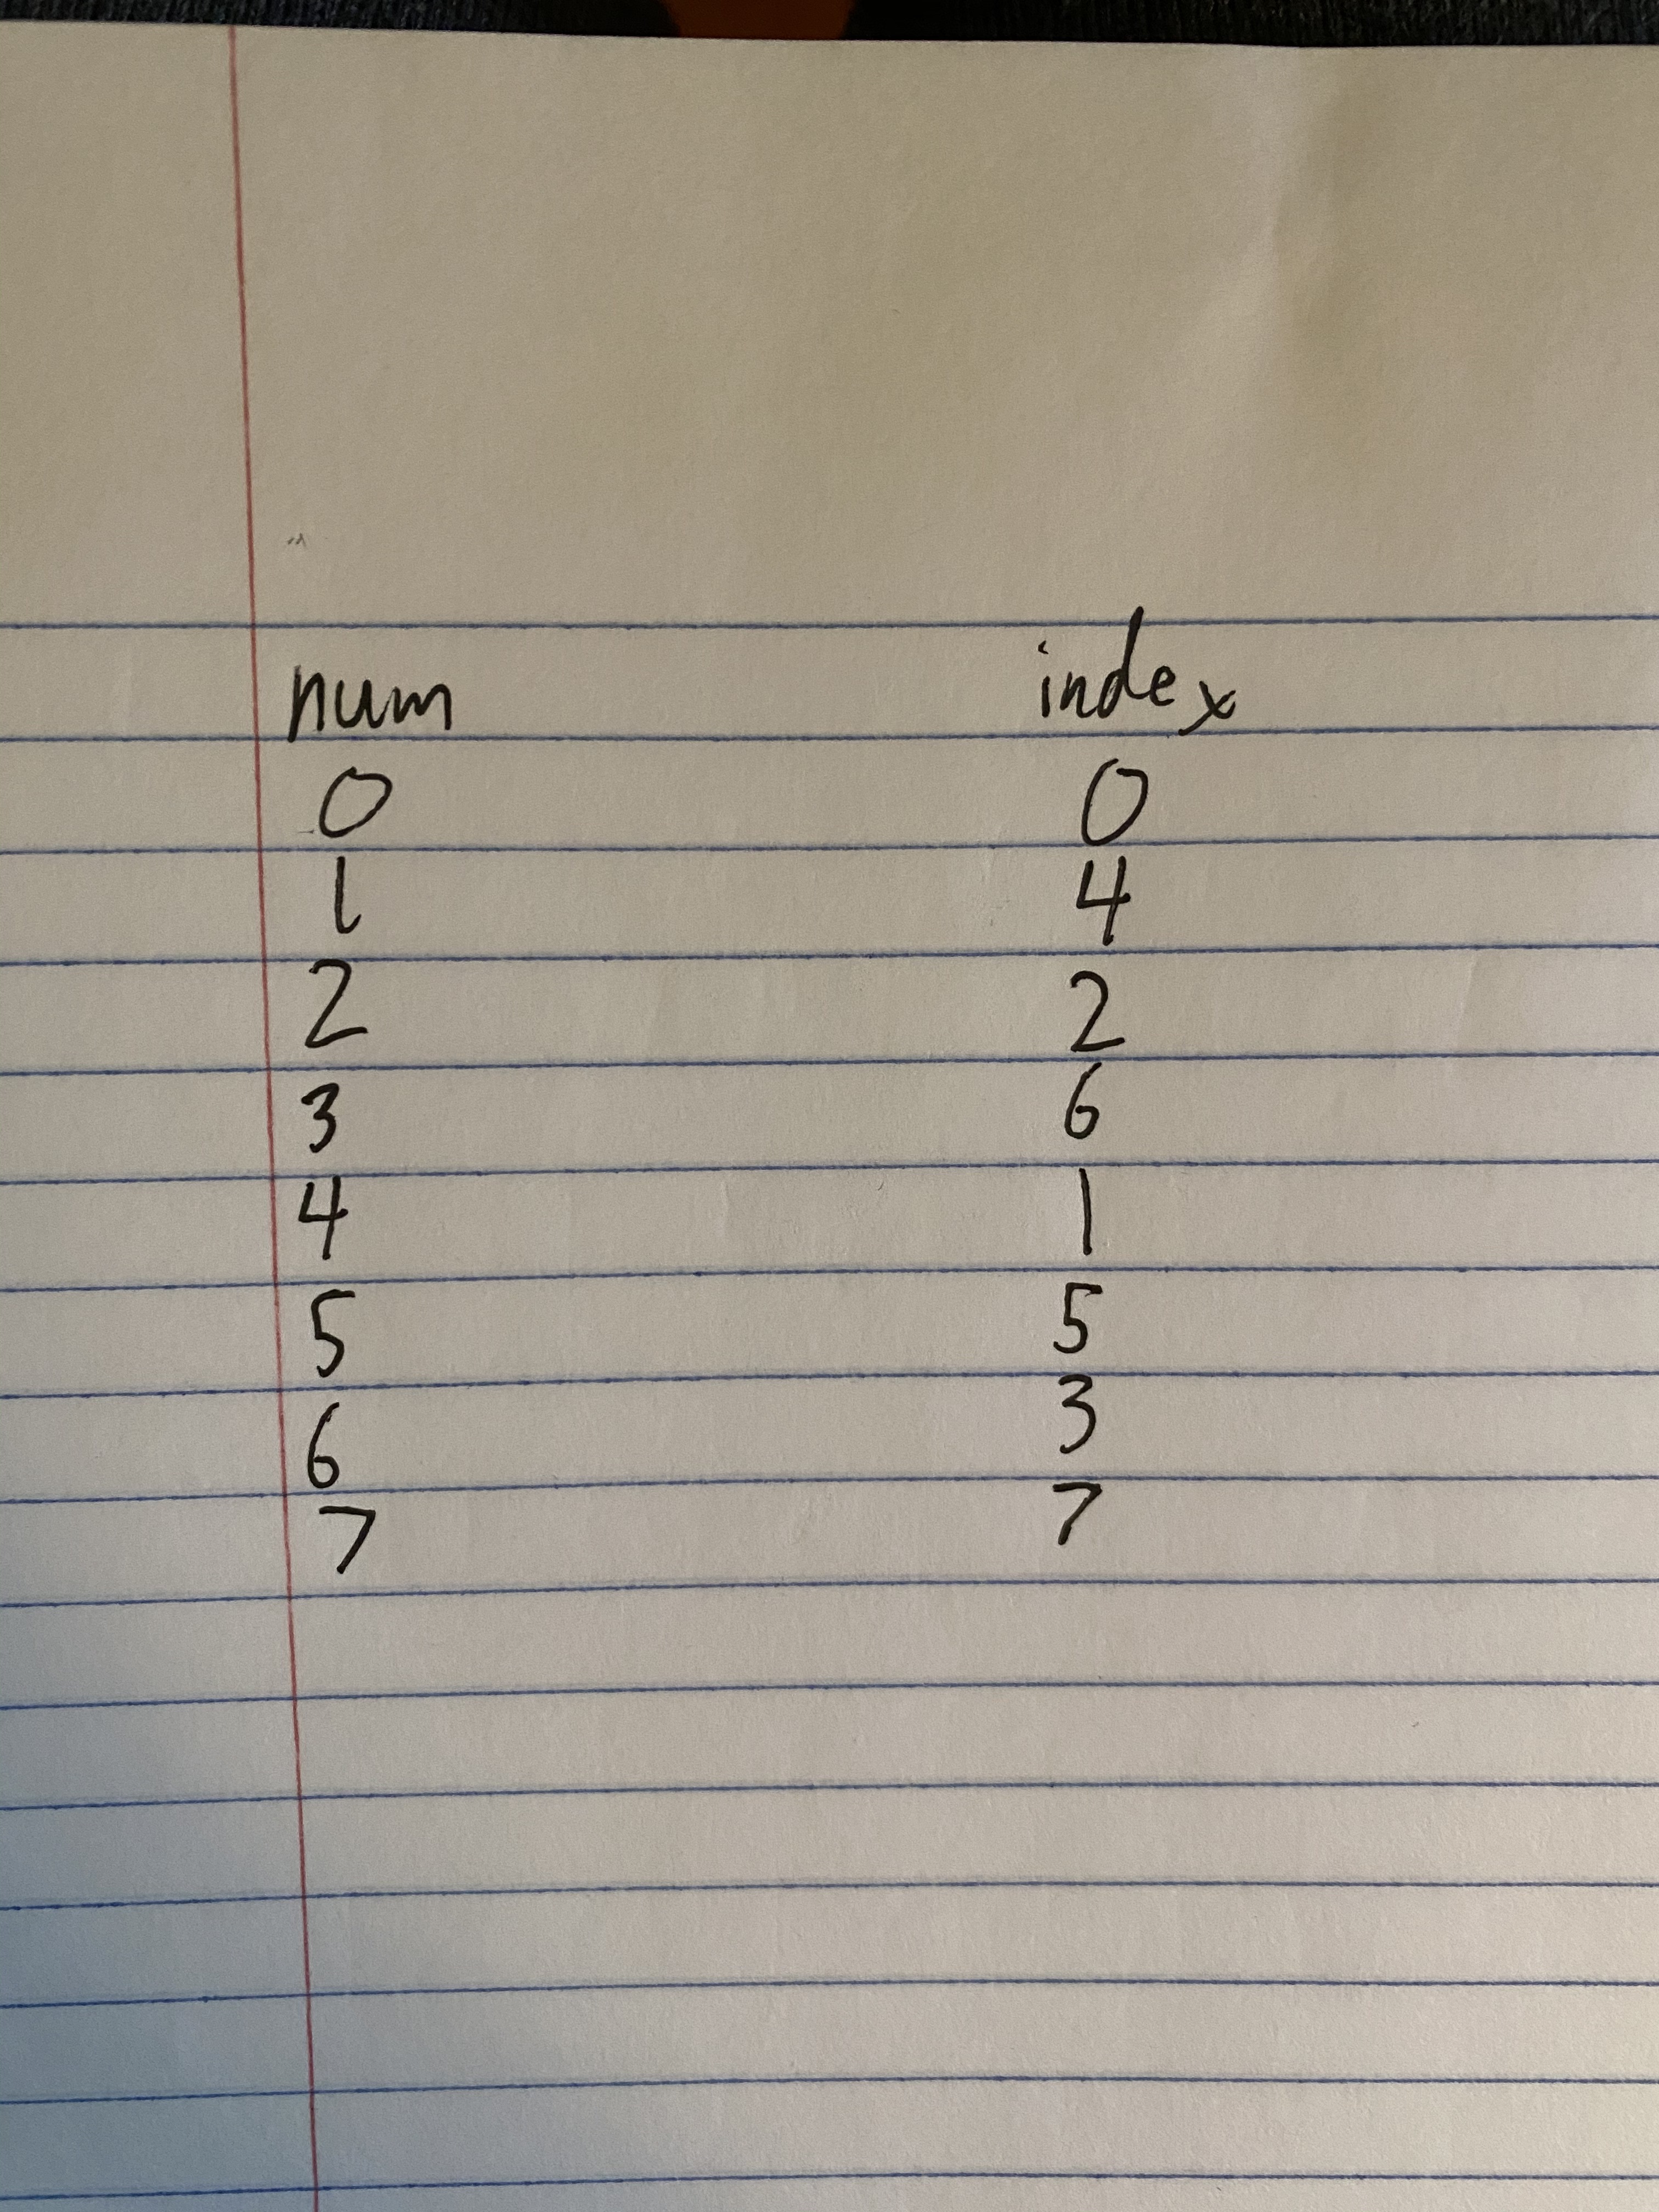 num index
0 0
1 4
2 2
3 6
4 1
5 5
6 3
7 7